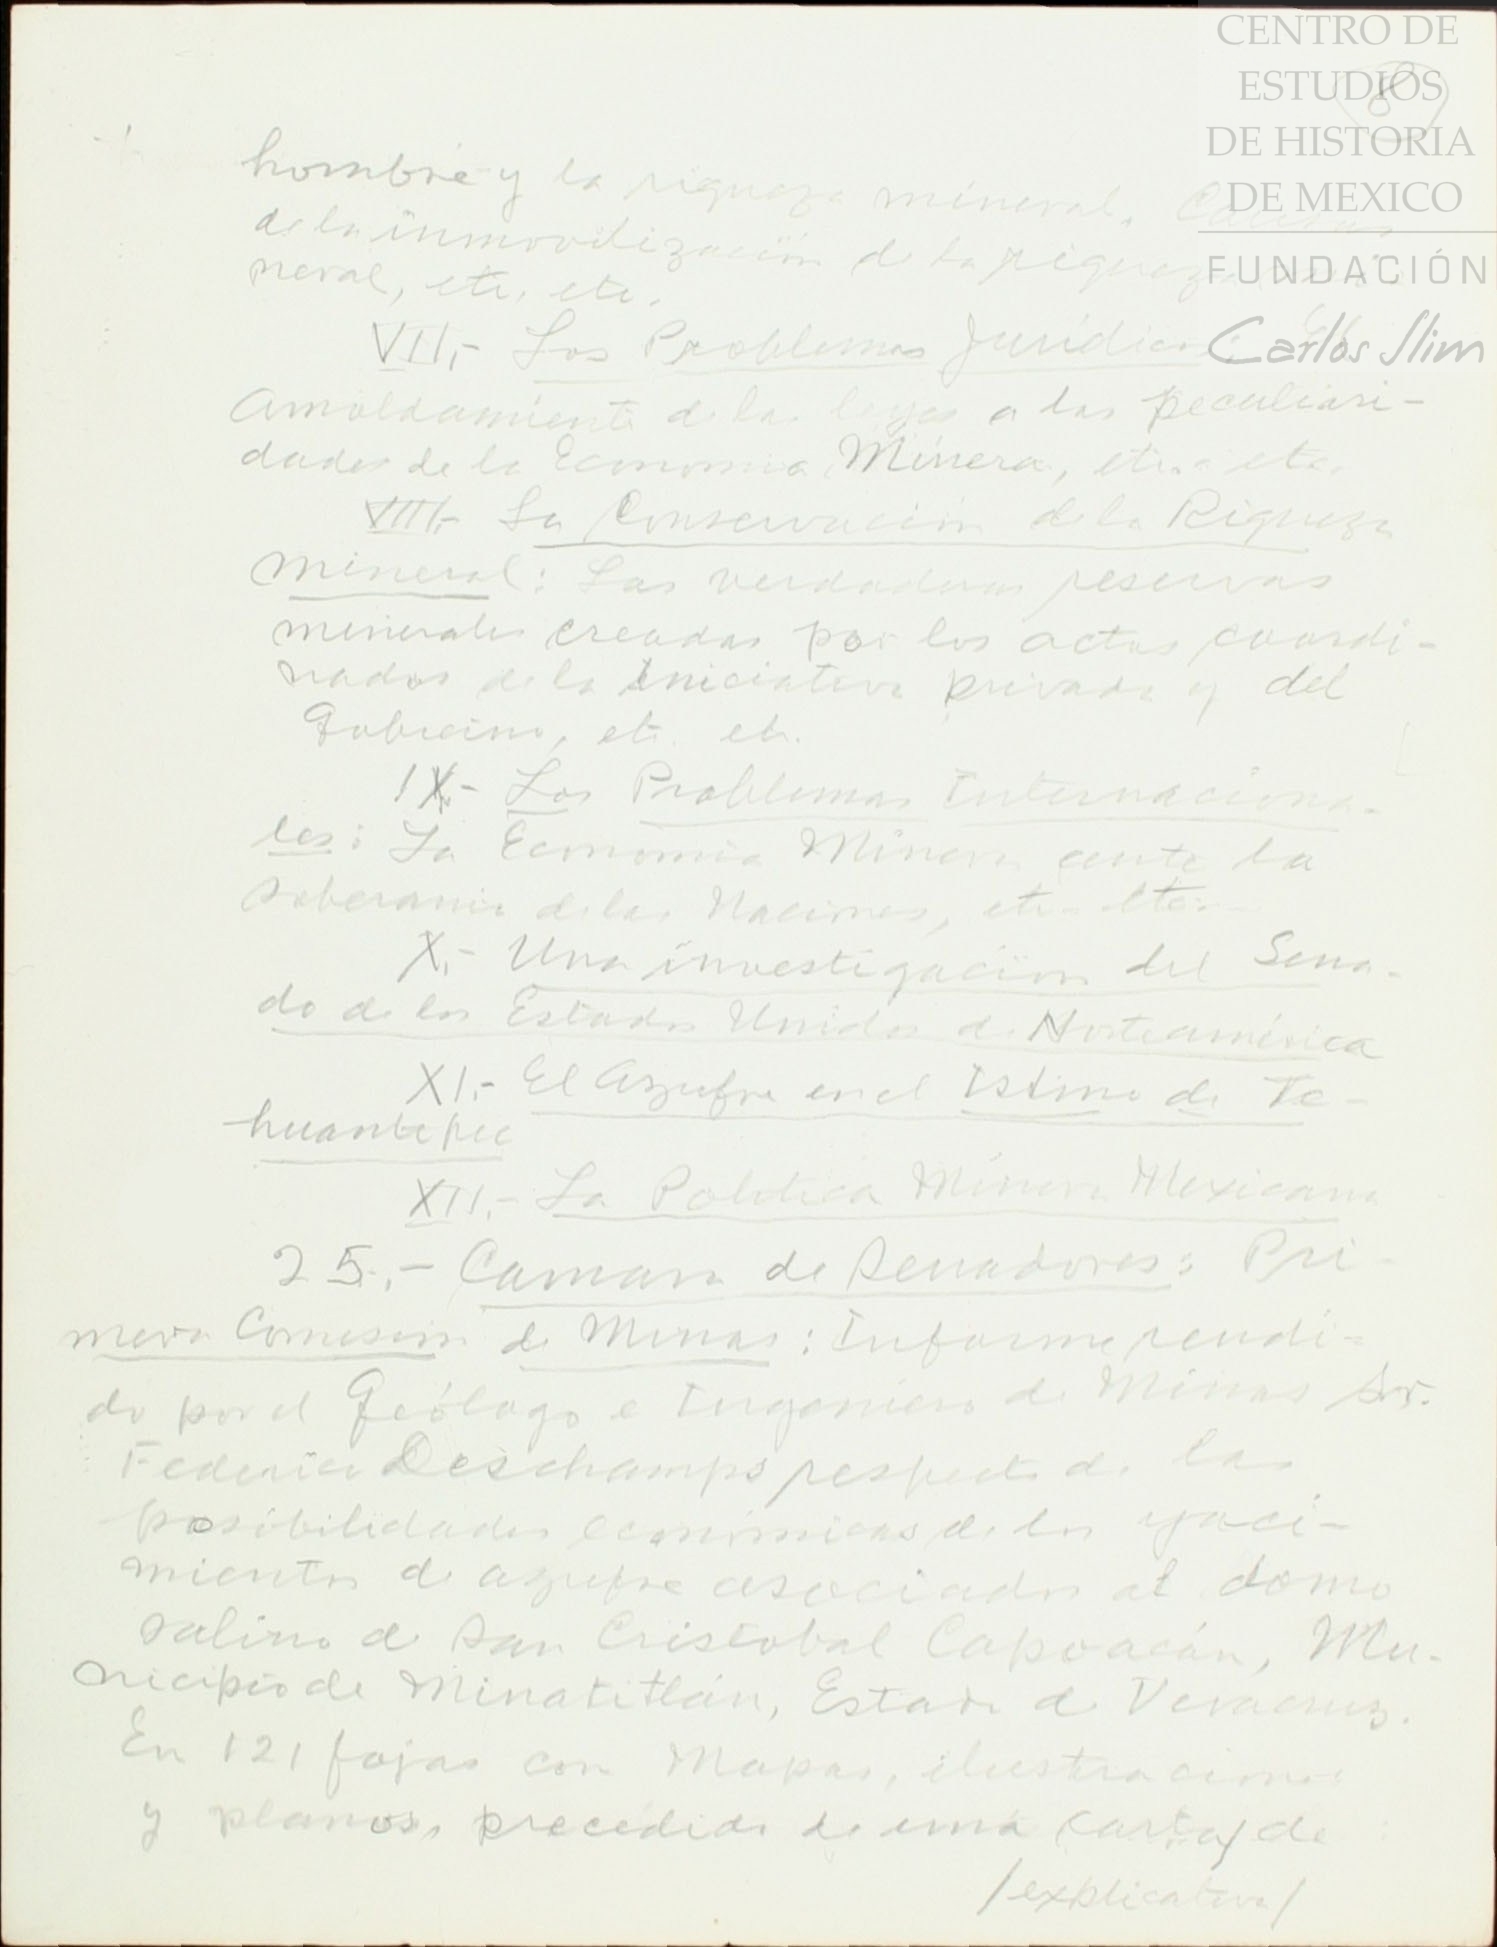 CENTRO DE
ESTUDIOS
DE HISTORIA
DE MEXICO
FUNDACIÓN
Carlos Slim
8
hombre y la riqueza mineral. Causas
de la inmovilización de la riqueza mi-
neral, etc, etc.
VII.- Los Problemas Jurídicos:
Amoldamiento de las leyes a las peculiari-
dades de la Economia Minera, etc. etc.
VIII.- La Conservación de la Riqueza
mineral: Las verdaderas reservas
minerales creadas por los actos coordi-
nados de la Iniciativa privada y del
Gobierno, etc. etc.
IX.- Los Problemas Internaciona-
les: La Economia Minera ante la
soberania de las Naciones, etc. etc.
X.- Una investigación del Sena-
do de los Estados Unidos de Norteamérica
XI.- El Azufre en el Istmo de Te-
huantepec
XII.- La Politica Minera Mexicana
25.- Camara de Senadores: Pri-
mera Comision de Minas: Informe rendi-
do por el Geólogo e Ingeniero de Minas Sr.
Federico Deschamps respecto de las
posibilidades económicas de los yaci-
mientos de azufre asociados al domo
salino de San Cristobal Capoacán, Mu-
nicipio de Minatitlán, Estado de Veracruz.
En 121 fojas con Mapas, ilustraciones
y planos, precedido de una carta/ de
/explicativa/